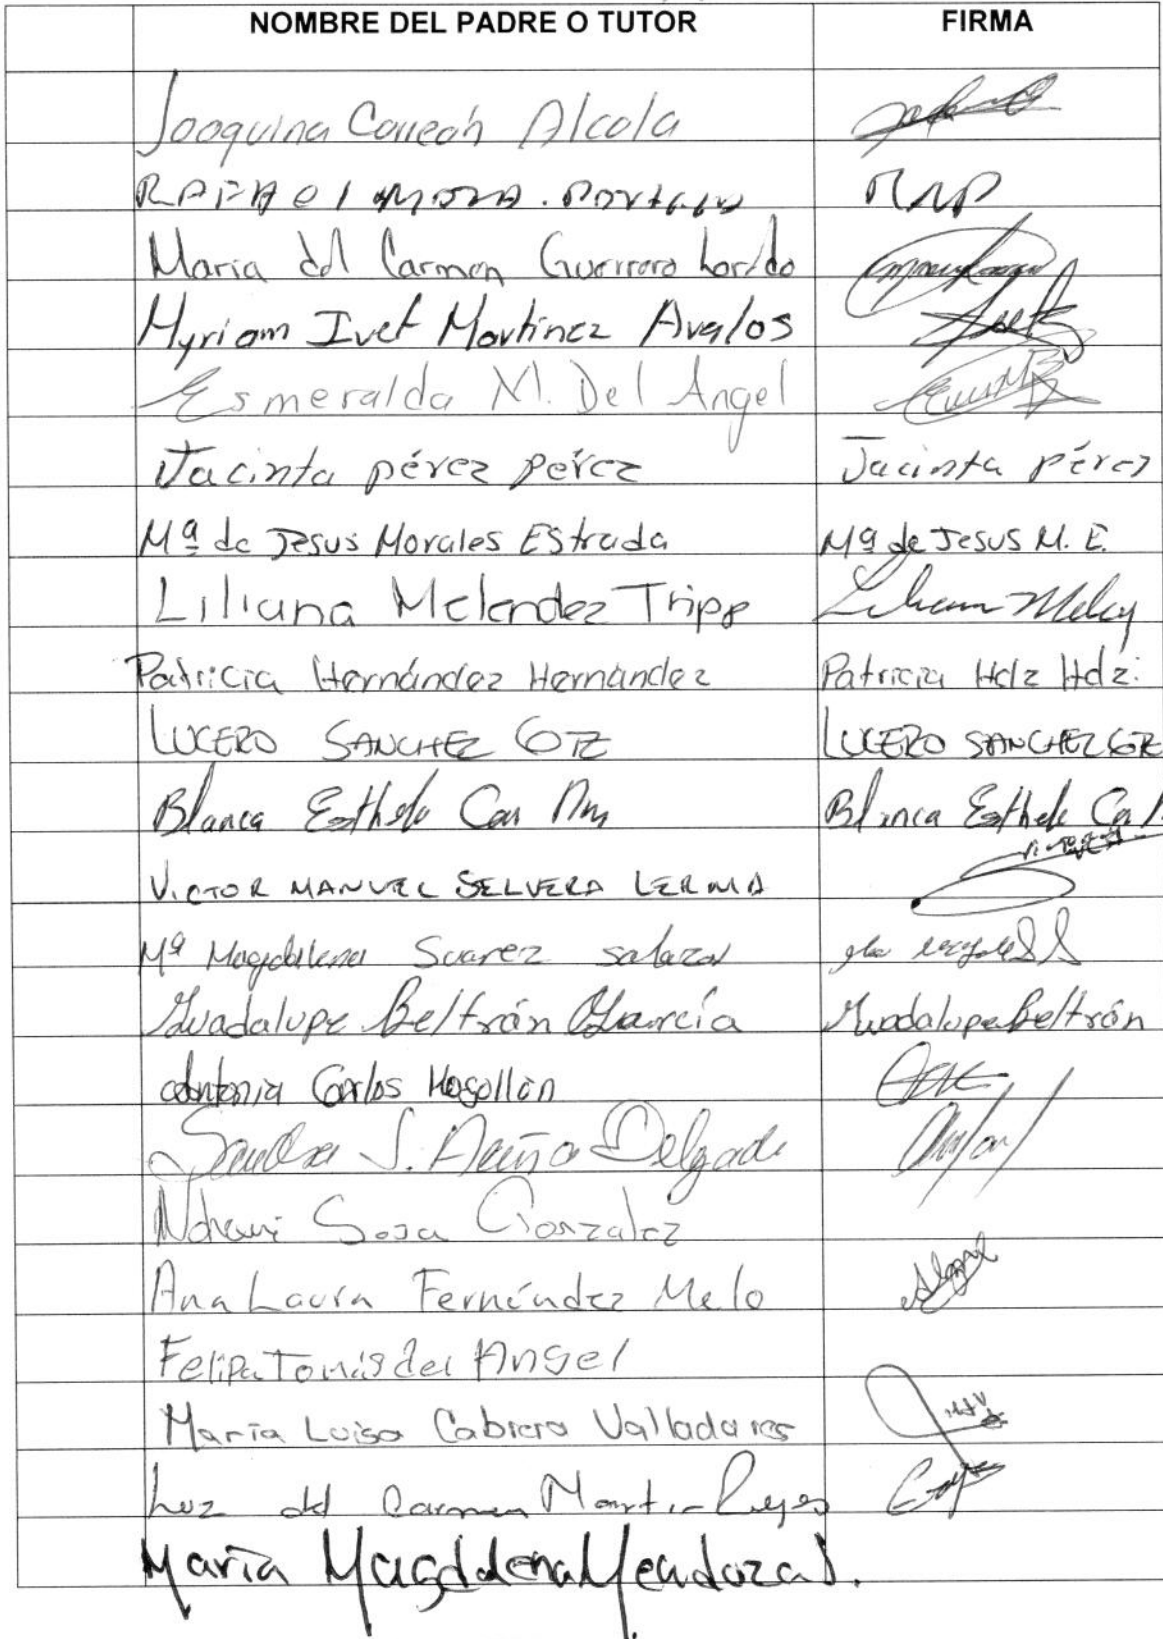 NOMBRE DEL PADRE O TUTOR FIRMA
Joaquina Alcala
RAFAEl MORA.
Maria del Carmen Guerrero Lorido
Myriam Ivet Martinez Avalos
Esmeralda M. Del Angel
Jacinta pérez pérez Jacinta pérez
Mª de Jesus Morales EStrada Mª de Jesus M. E.
Liliana Melendez Tripp
Patricia Hernández Hernández Patricia Hdz Hdz.
LUCERO SANCHEZ GTZ LUCERO SANCHEZ GTZ
Blanca Esthela Blanca Esthela
VICTOR MANUEL SELVERA LERMA
Mª Magdalena Suarez salazar
Guadalupe Beltrán García Guadalupe Beltrán
Antonia Carlos Mogollón
Sandra S. Delgado
Nohemi Sosa Gonzalez
Ana Laura Fernández Melo
Felipa Tomás del Angel
María Luisa Cabrera Valladares
Luz del Carmen Reyes
María Magdalena Mendoza